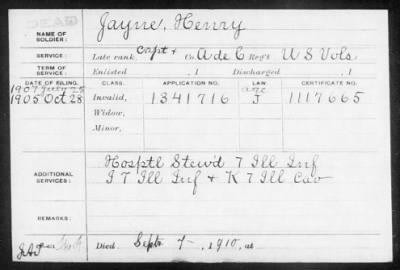 DEAD
NAME OF SOLDIER: Jayne, Henry
SERVICE: Late rank, Capt + Co. A de C Reg't U S Vols
TERM OF SERVICE: Enlisted , 1 Discharged , 1
DATE OF FILING. CLASS. APPLICATION NO. LAW CERTIFICATE NO.
1907 July 25
1905 Oct 28 Invalid, 1341716 J 1117665
Widow,
Minor,
ADDITIONAL SERVICES: Hosptl Stew'd 7 Ill Inf
I 7 Ill Inf + K 7 Ill Cav
REMARKS:
Died Sept 7 , 1910, at